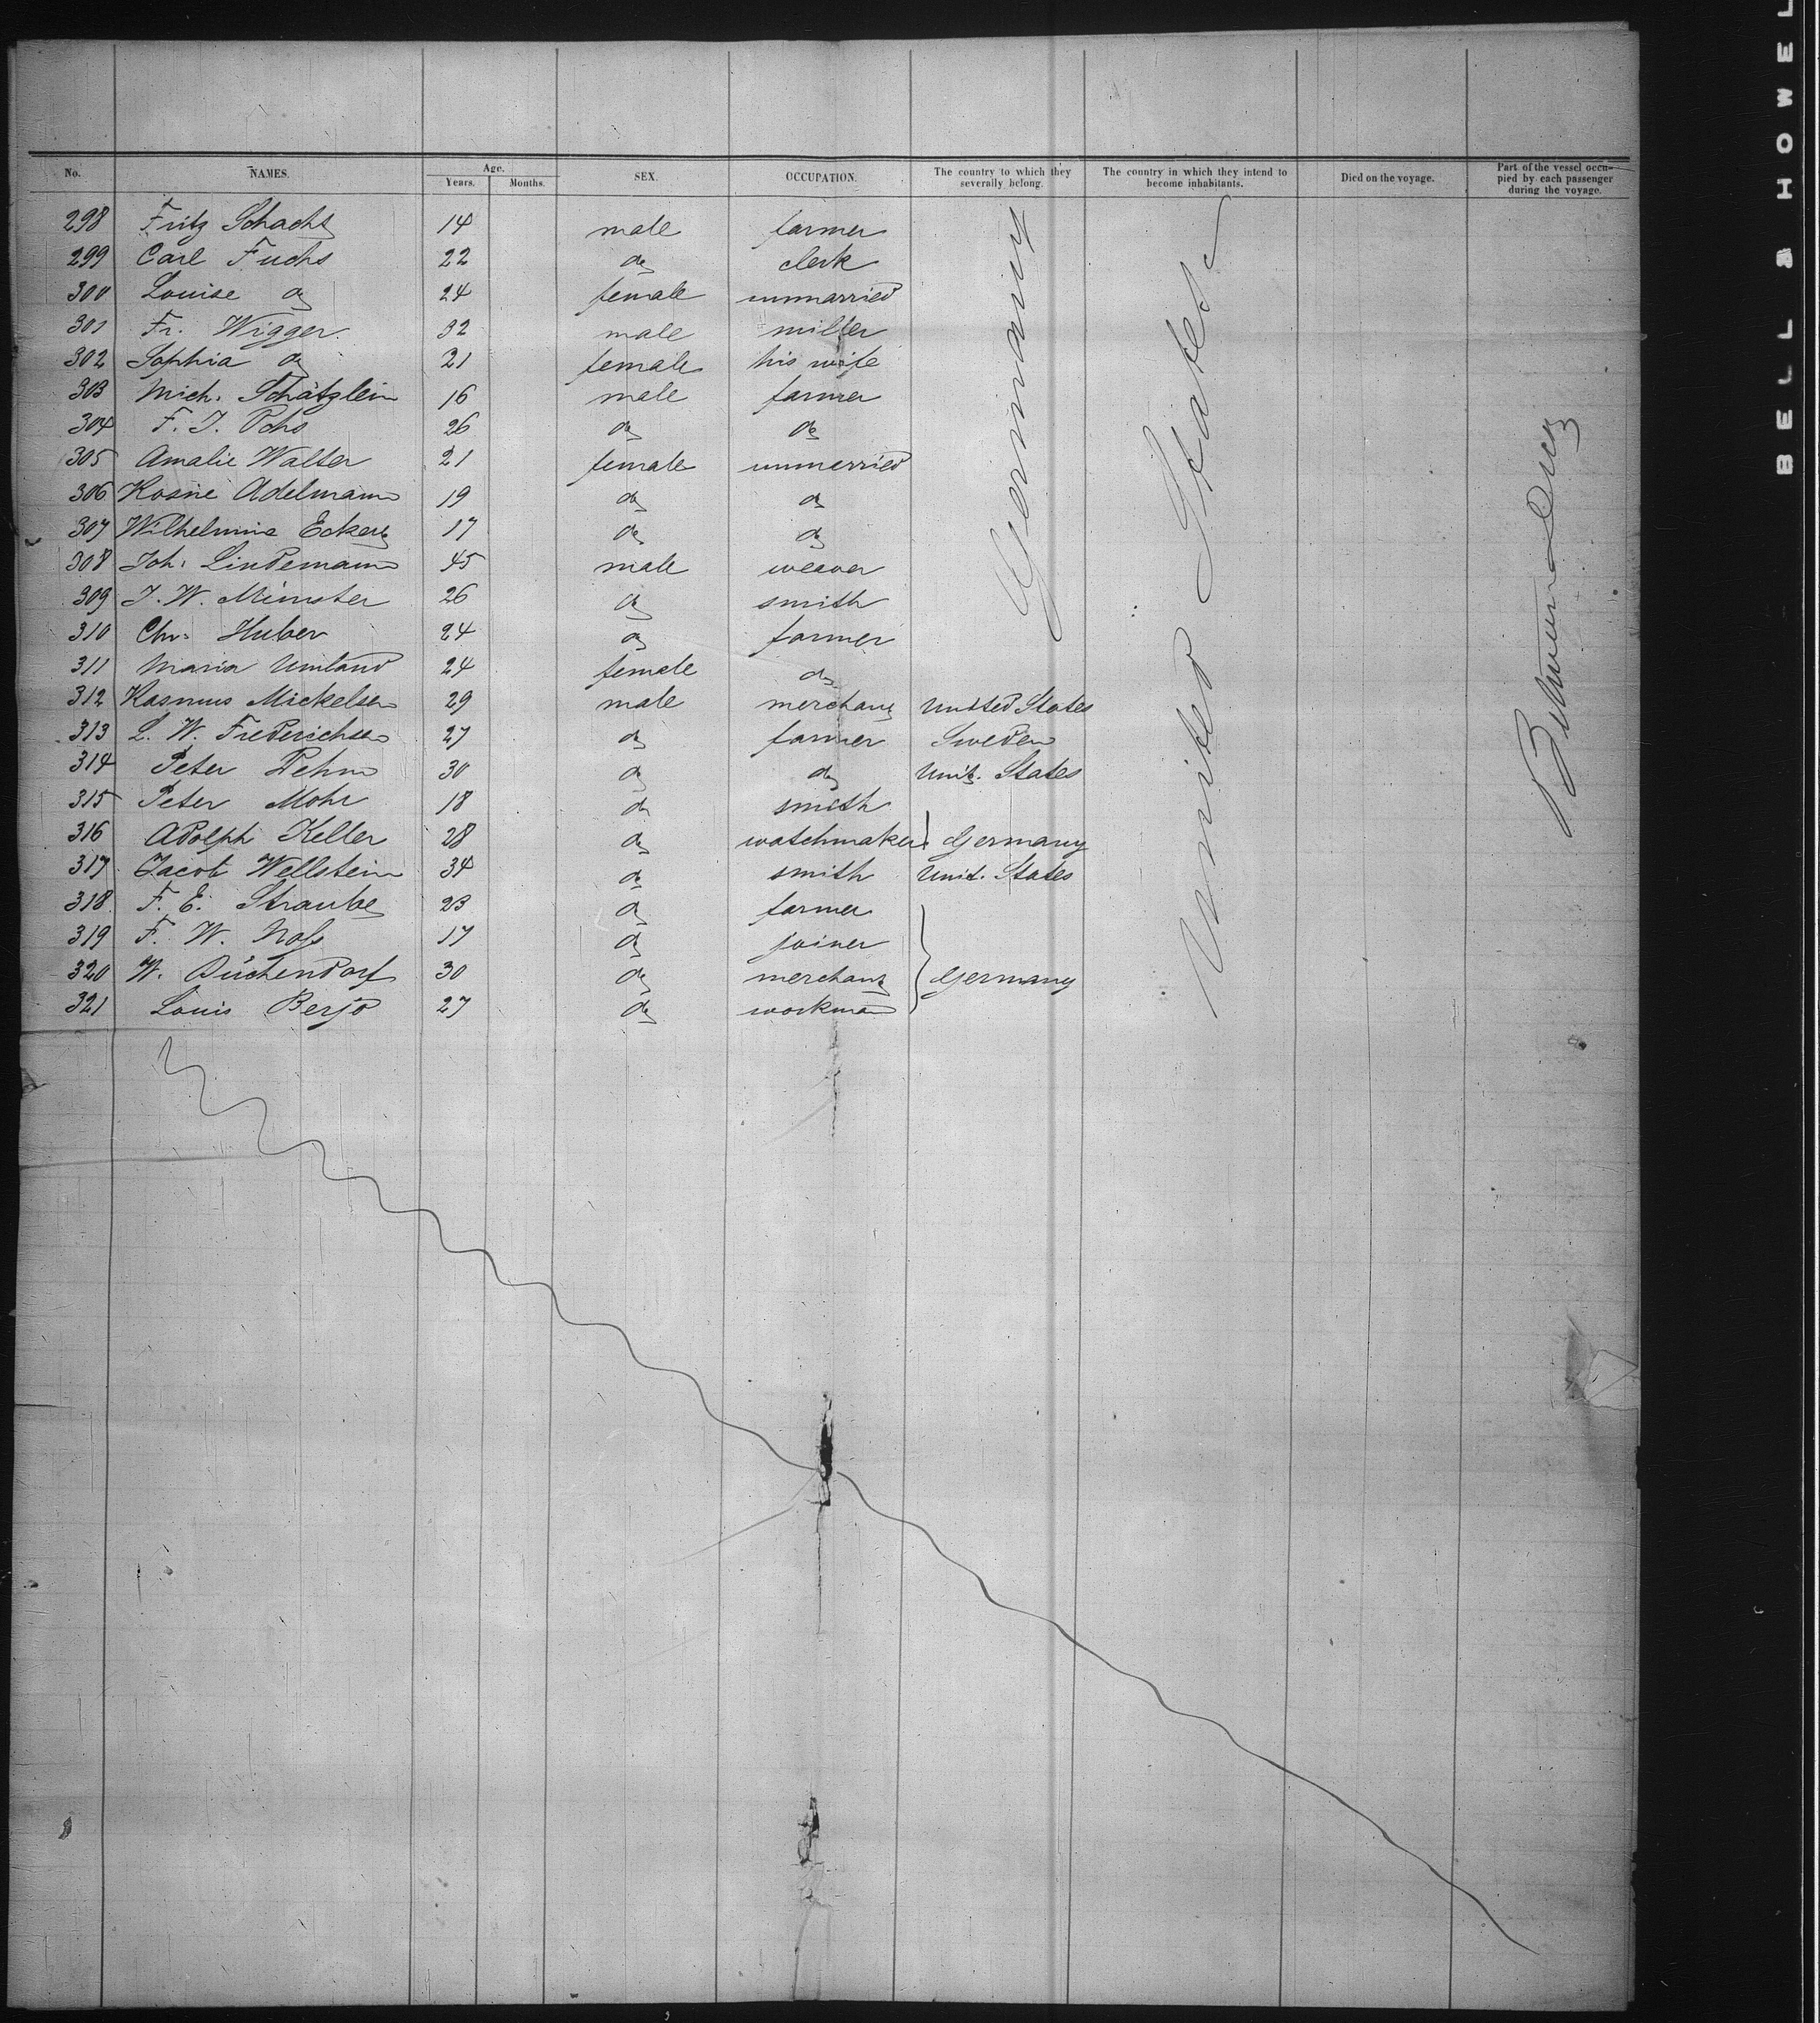 No. NAMES. Age. Years. Months. SEX. OCCUPATION. The country to which they severally belong. The country in which they intend to become inhabitants. Died on the voyage. Part of the vessel occupied by each passenger during the voyage.
298 Fritz Schacht 14 male farmer
299 Carl Fuchs 22 do clerk
300 Louise do 24 female unmarried
301 Fr. Wigger. 32 male miller
302 Sophia do 21 female his wife
303 Mich. Schätzlein 16 male farmer
304 F. J. Ochs 26 do do
305 Amalie Walter 21 female unmerried
306 Rosine Adelmann 19 do do
307 Wilhelmine Eckert 17 do do
308 Joh. Lindemann 45 male weaver
309 J. W. Münster 26 do smith
310 Chr. Huber 24 do farmer
311 Maria Umland 24 female do
312 Rasmus Mickelsen 29 male merchant United States
313 L. W. Frederichsen 27 do farmer Sweden
314 Peter Dehn 30 do do Unit. States
315 Peter Mohr 18 do smith
316 Adolph Keller 28 do watchmaker Germany
317 Jacob Wellstein 34 do smith Unit. States
318 F. E. Straube 23 do farmer
319 F. W. 17 do joiner
320 W. Düchendorf 30 do merchant Germany
321 Louis 27 do workman
Germany
United States
Between Deck
BELL & HOWEL